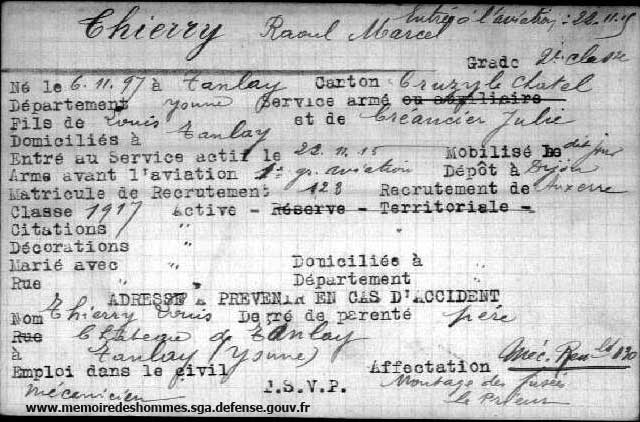 Thierry Raoul Marcel Entré à l'aviation : 22.11.15
Grade 2e classe
Né le 6.11.97 à Tanlay Canton Cruzy le Chatel
Département Yonne Service armé ou auxiliaire
Fils de Louis et de Créancier Julie
Domiciliés à Tanlay
Entré au Service actif le 22.11.15 Mobilisé le dit jour
Arme avant l'aviation 1er gr. aviation Dépôt à Dijon
Matricule de Recrutement 128 Recrutement de Auxerre
Classe 1917 Active - Réserve - Territoriale -
Citations "
Décorations "
Marié avec " Domiciliés à "
Rue " Département "
ADRESSE A PREVENIR EN CAS D'ACCIDENT
Nom Thierry Louis Degré de parenté père
Rue Château de Tanlay
à Tanlay (Yonne)
Emploi dans le civil Affectation Méc.
mécanicien T.S.V.P. Montage des fusées
le Prieur
www.memoiredeshommes.sga.defense.gouv.fr